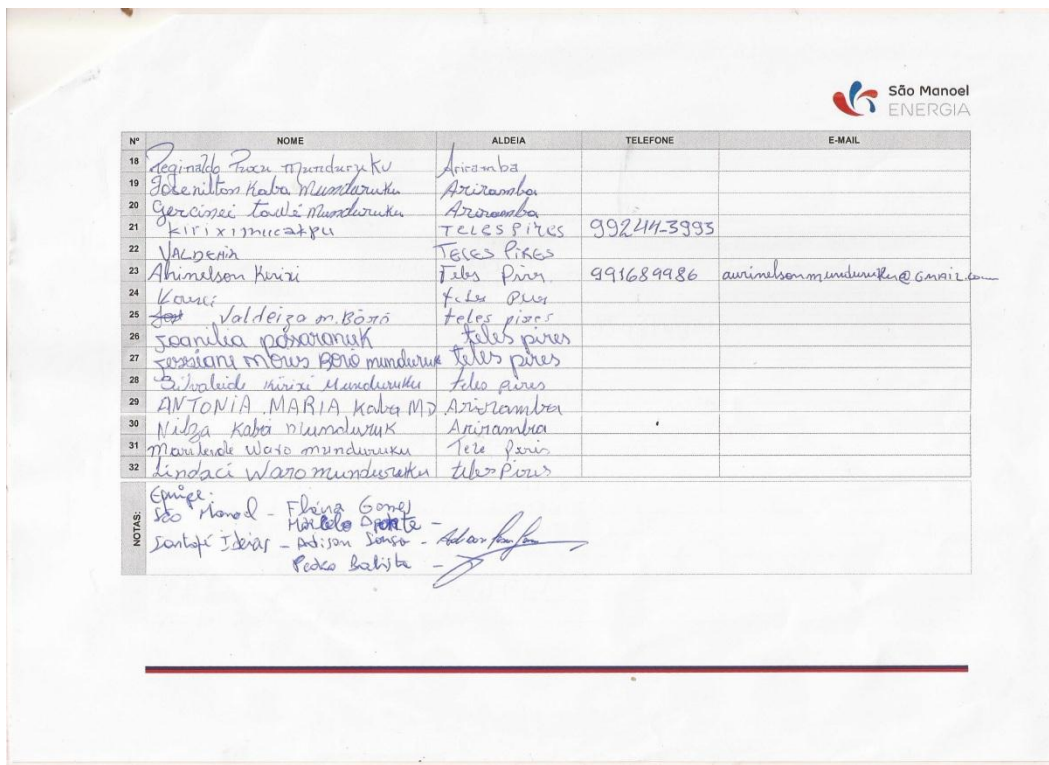 São Manoel
ENERGIA
Nº NOME ALDEIA TELEFONE E-MAIL
18 Reginaldo Munduruku Ariramba
19 Josenilton Kaba Munduruku Ariramba
20 Gercinei Munduruku Ariramba
21 Kiriximucatpu TELES PIRES 99244-3993
22 VALDEMIR TELES PIRES
23 Ahinelson Kirixi Teles Pires 991689986 aurinelsonmunduruku@GMAIL.com
24 teles
25 Valdeiza m. Bōrō teles pires
26 Joanilia teles pires
27 Boro munduruk teles pires
28 Kirixi Munduruku teles pires
29 ANTONIA MARIA Kaba MD Ariramba
30 Nilza Kaba Munduruk Ariramba
31 Waro munduruku Tele Piris
32 Lindaci Waro munduruku teles Pires
NOTAS:
Equipe:
São Manoel - Flávia Gomes
Marcelo -
- Adison -
Pedro Batista -